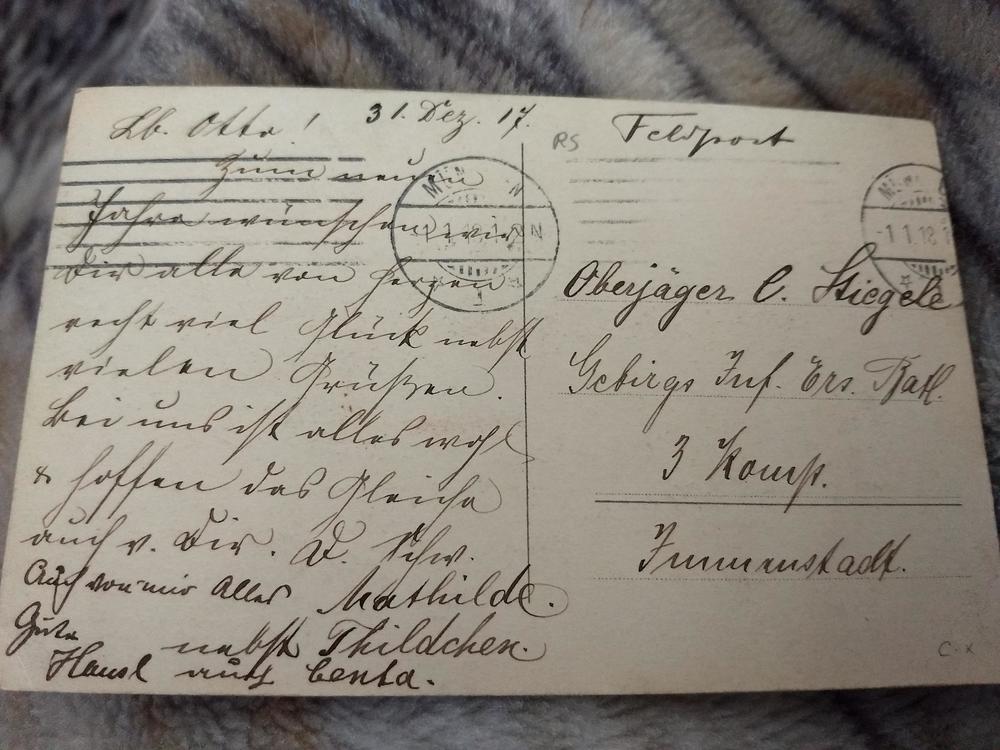 Lb. Otto! 31. Dez. 17.
Zum neuen
Jahre wünschen wir
Dir alle von Herzen
recht viel Glück nebst
vielen Grüßen.
Bei uns ist alles wohl
& hoffen das Gleiche
auch v. Dir. D. Schw.
Mathilde.
nebst Thildchen.
Auch von mir Alles
Gute
Hansl auch Centa.
RS
Feldpost
MÜN N
1
M
-1 1.18 1
Oberjäger O. Stiegele
Gebirgs Inf. Ers. Batl.
3 Komp.
Immenstadt.
C-x